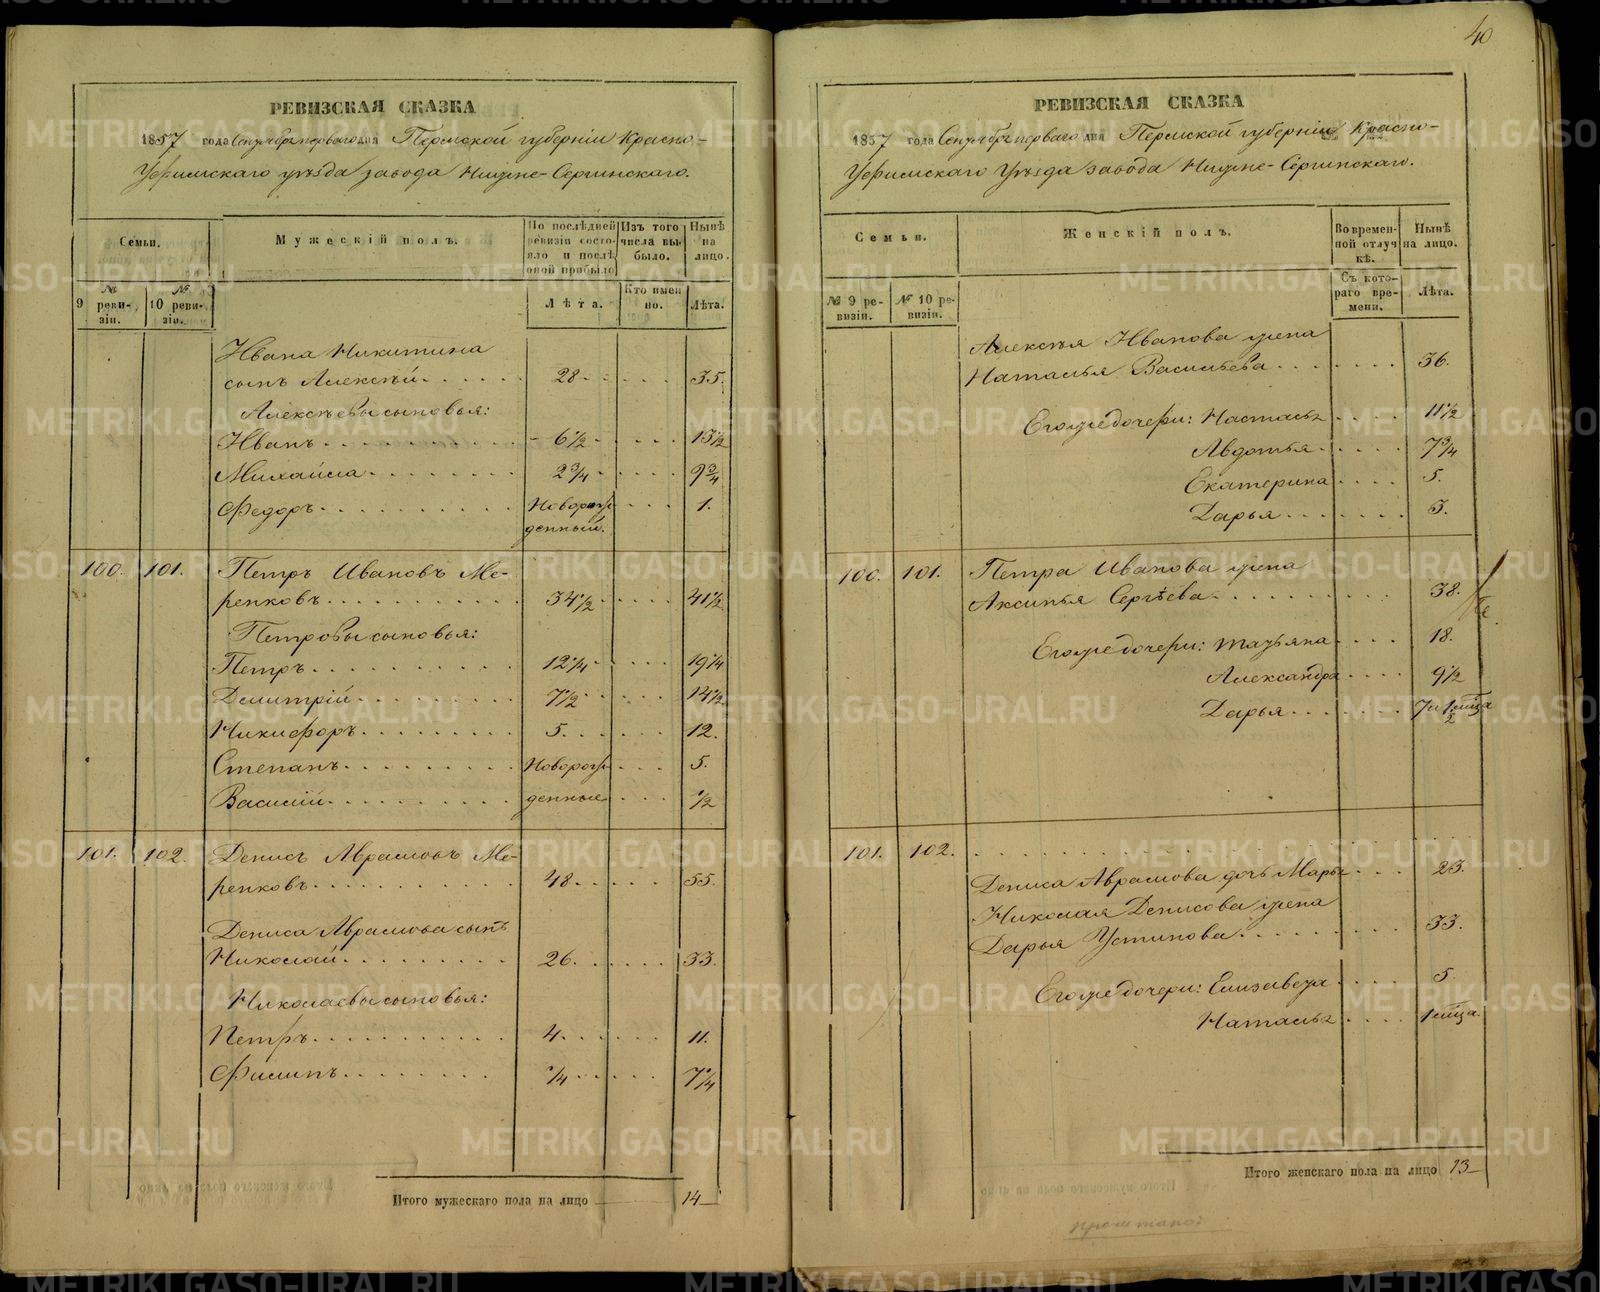 40
РЕВИЗСКАЯ СКАЗКА
1857 года Сентября перваго дня Пермской губерніи Красно-
Уфимскаго уѣзда завода Нижне-Сергинскаго.
Семьи.
№ 9 ревизіи.
№ 10 ревизіи.
Мужескій полъ.
По послѣдней ревизіи состояло и послѣ оной прибыло
Лѣта.
Изъ того числа выбыло.
Кто именно.
Нынѣ на лицо.
Лѣта.
Ивана Никитина
сынъ Алексѣй 28 35.
Алексѣевы сыновья:
Иванъ 6 1/2 13 1/2
Михайла 2 3/4 9 3/4
Федоръ Новорожденный. 1.
100. 101. Петръ Ивановъ Ме-
репковъ 34 1/2 41 1/2
Петровы сыновья:
Петръ 12 1/4 19 1/4
Дмитрій 7 1/2 14 1/2
Никифоръ 5. 12.
Степанъ Новорож- 5.
Василій денные 1/2
101. 102. Денисъ Аврамовъ Ме-
репковъ 48 55.
Дениса Аврамова сынъ
Николай 26. 33.
Николаевы сыновья:
Петръ 4. 11.
Филипъ 1/4 7 1/4
Итого мужескаго пола на лицо 14
РЕВИЗСКАЯ СКАЗКА
1857 года Сентября перваго дня Пермской губерніи Красно-
Уфимскаго Уѣзда завода Нижне-Сергинскаго.
Семьи.
№ 9 ревизіи.
№ 10 ревизіи.
Женскій полъ.
Во временной отлучкѣ.
Съ котораго времени.
Нынѣ на лицо.
Лѣта.
Алексѣя Иванова жена
Наталья Васильева 36.
Его же дочери: Настасья 11 1/2
Авдотья 7 3/4
Екатерина 5.
Дарья 3.
100. 101. Петра Иванова жена
Аксинья Сергѣева 38.
Его же дочери: Татьяна 18.
Александра 9 1/2
Дарья 7 и 1/2 мѣсяца
101. 102.
Дениса Аврамова дочь Марья 23.
Николая Денисова жена
Дарья Устинова 33.
Его же дочери: Елизавета 5.
Наталья 1 мѣсяца.
Итого женскаго пола на лицо 13
METRIKI.GASO-URAL.RU